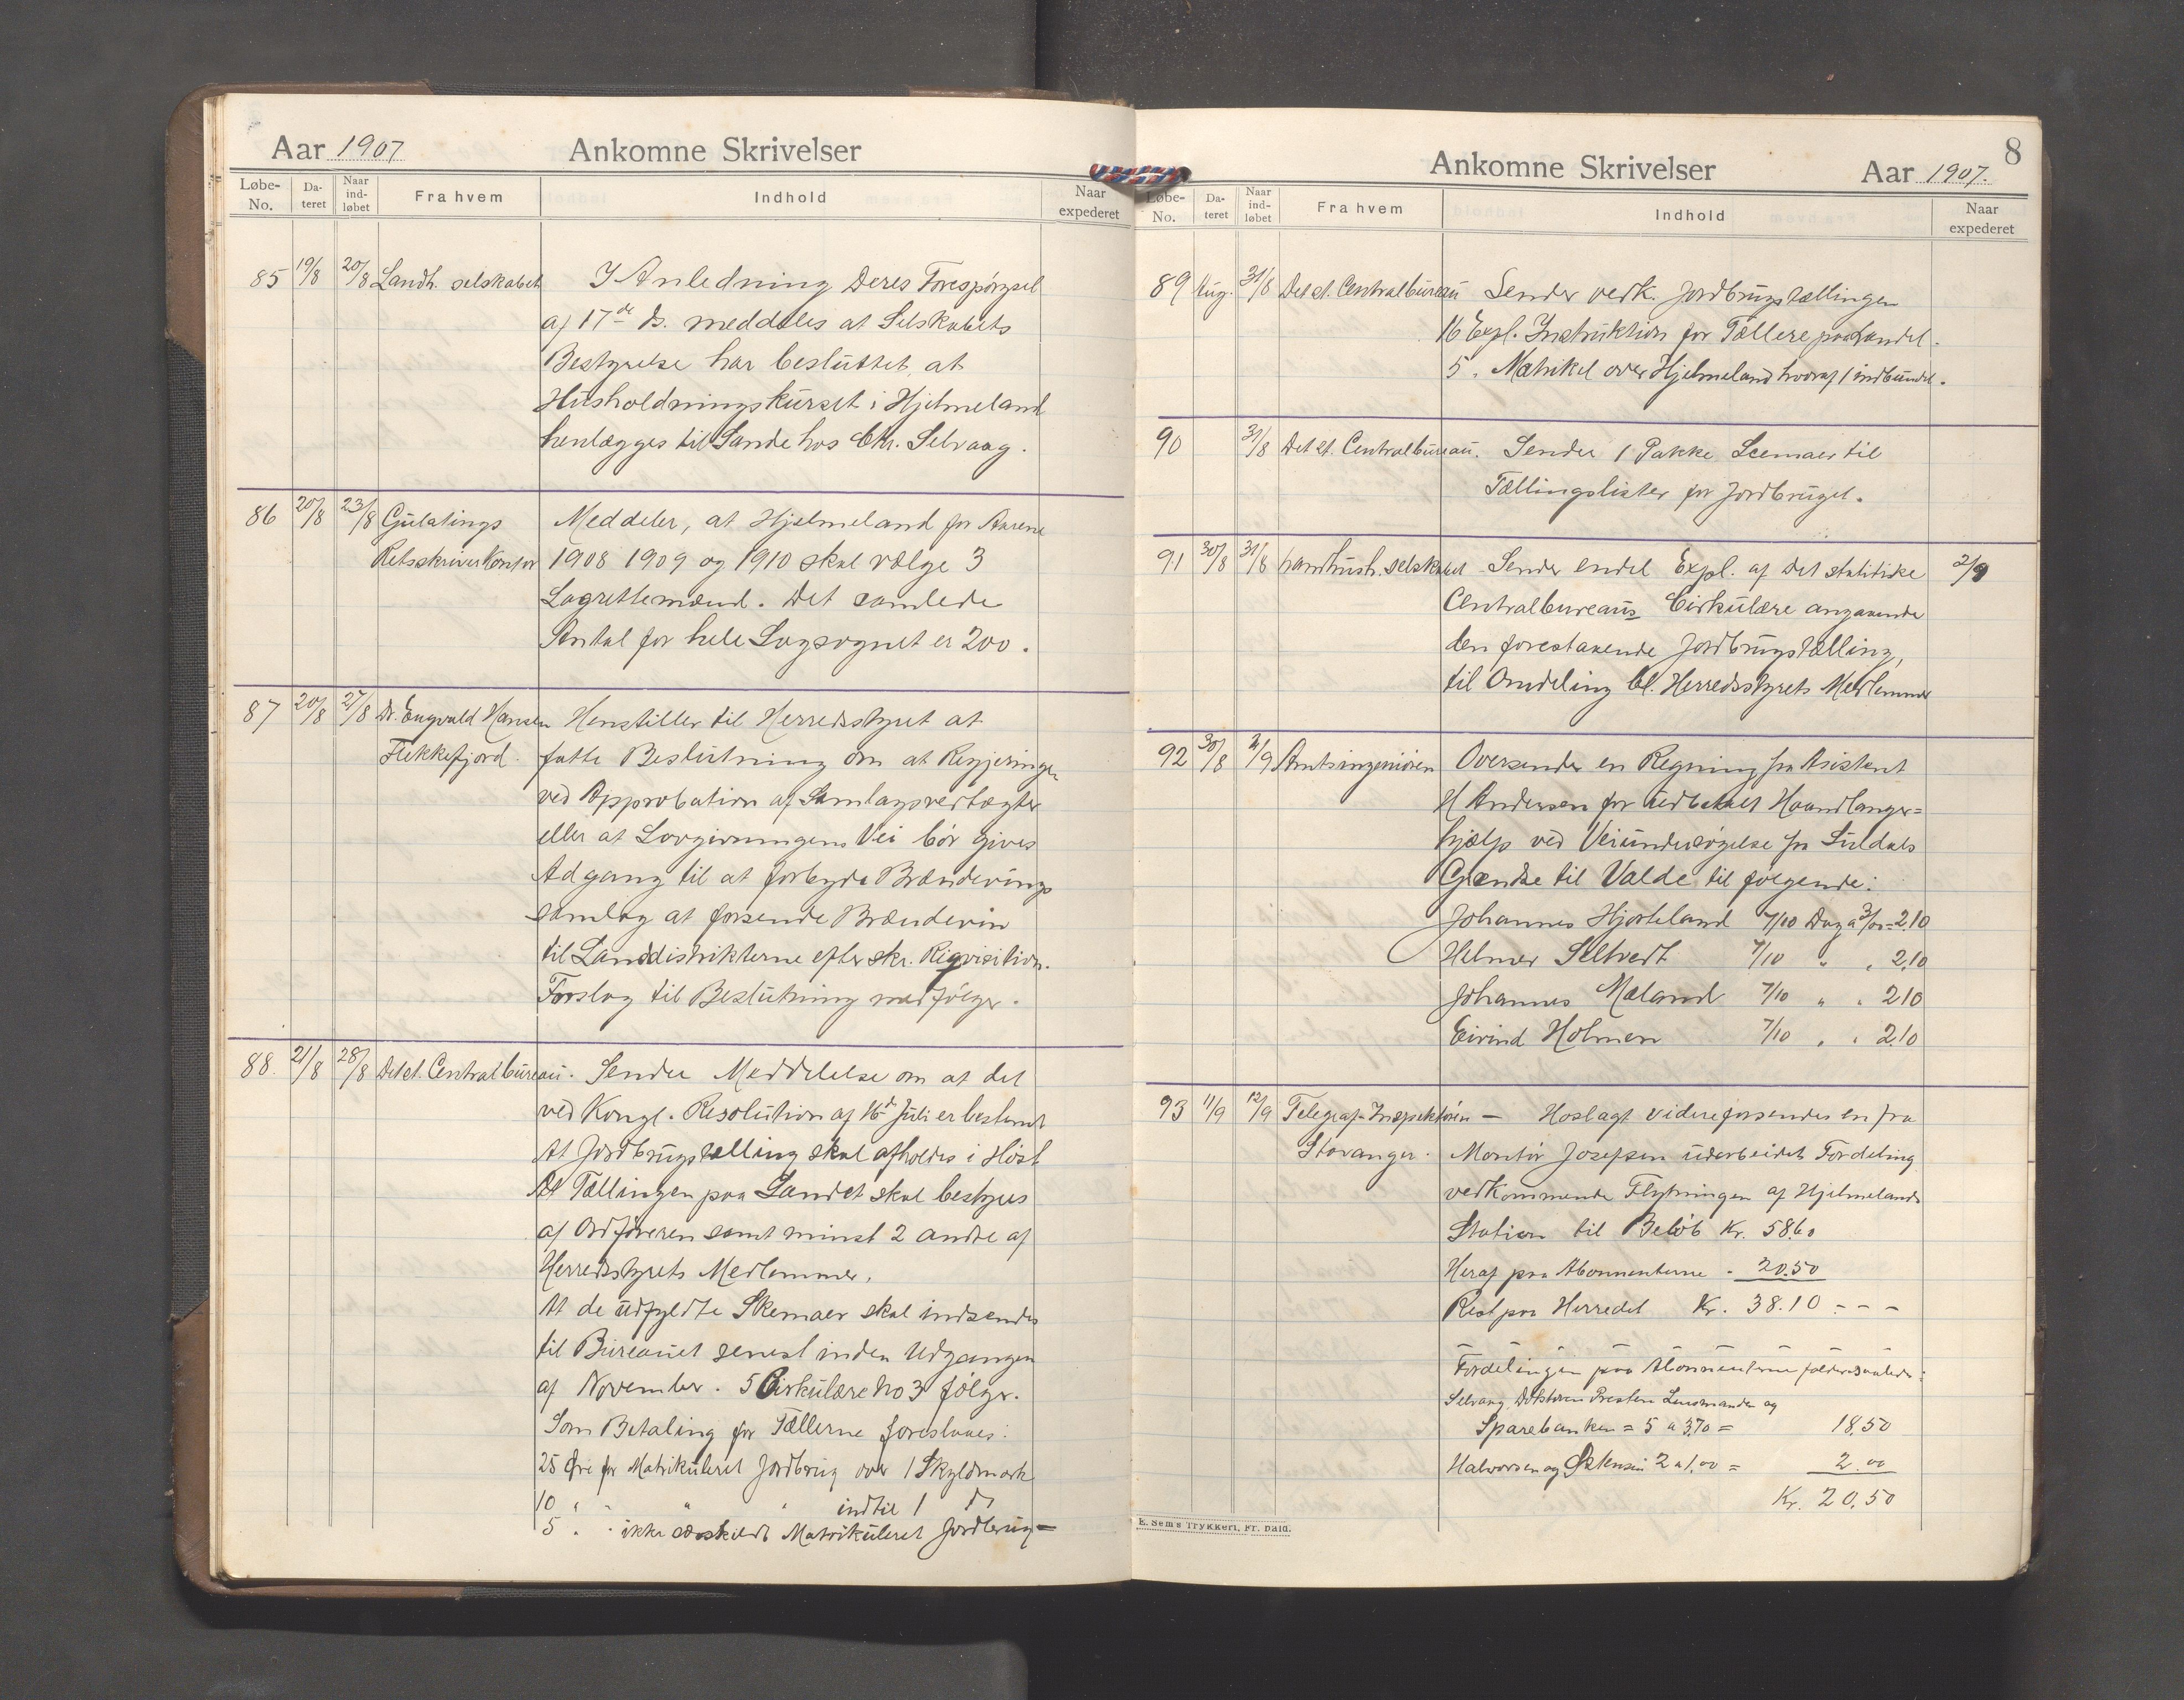 Aar 1907 Ankomne Skrivelser
Løbe-No. Da-teret Naar ind-løbet Fra hvem Indhold Naar expederet
85 19/8 20/8 Landh. selskabet I Anledning Deres Forespørgsel
af 17de ds. meddeles at Selskabets
Bestyrelse har besluttet, at
Husholdningskurset i Hjelmeland
henlægges til Sande hos Chr. Selvaag.
86 20/8 23/8 Gulatings Meddeler, at Hjelmeland for Aarene
Retsskriverkontor 1908 1909 og 1910 skal vælge 3
Lagrettemænd. Det samlede
Antal for hele Lagsognet er 200.
87 20/8 27/8 Dr. Engvald Hansen Henstiller til Herredsstyret at
Flekkefjord. fatte Beslutning om at Regjeringen
ved Approbation af Samlagsvedtægter
eller at Lovgivningens Vei bør gives
Adgang til at forbyde Brændevins
samlag at forsende Brændevin
til Landdistrikterne efter skr. Rigvisition.
Forslag til Beslutning medfølger.
88. 21/8 28/8 Det st. Centralbureau. Sender Meddelelse om at det
ved Kongl. Resolution af 16d Juli er bestemt
At Jordbrugstælling skal afholdes i Høst
At Tællingen paa Landet skal bestyres
af Ordføreren samt minst 2 andre af
Herredsstyrets Medlemmer.
At de udfyldte Skemaer skal indsendes
til Bureauet senest inden Udgangen
af November. 5 Cirkulære No 3 følger.
Som Betaling for Tællerne foreslaaes:
25 Øre for Matrikuleret Jordbrug over 1 Skyldmark
10 " " " " indtil 1 ds
5 " " ikke særskildt Matrikuleret Jordbrug =
8
Ankomne Skrivelser Aar 1907.
Løbe-No. Da-teret Naar ind-løbet Fra hvem Indhold Naar expederet
89 Aug. 31/8 Det st. Centralbureau Sender vedk. Jordbrugstællingen
16 Expl. Instruktion for Tællere paa Landet.
5 " Matrikel over Hjelmeland hvoraf 1 indbundet.
90 31/8 Det st. Centralbureau. Sender 1 Pakke Scemaer til
Tællingslister for Jordbruget.
91 30/8 31/8 Landhush. selskabet Sender endel Expl. af Det statitiske 2/9
Centralbureaus Cirkulære angaaende
den forestaaende Jordbrugstælling,
til Omdeling bl. Herredsstyrets Medlemmer
92 30/8 2/9 Amtsingeniøren Oversender en Regning fra Asistent
H Andersen for udbetalt Haandlanger=
hjælp ved Veiundersøgelse fra Suldals
Grændse til Valde til følgende:
Johannes Hjorteland 7/10 Dag a 3/00 = 2.10
Helmer Seltvedt 7/10 " " 2.10
Johannes Mæland 7/10 " " 2.10
Eivind Holmen 7/10 " " 2.10
93 11/9 12/9 Telegraf-Inspektøren — Hoslagt videreforsendes en fra
Stavanger. Montør Josefsen udarbeidet Fordeling
vedkommende Flytningen af Hjelmelands
Station til Beløb Kr. 58.60
Heraf paa Abonnenterne " 20.50
Rest paa Herredet Kr. 38.10 - - -
Fordelingen paa Abonnenterne falder saaledes:
Selvaag, Doktoren Presten Lensmanden og
Sparebanken = 5 a 3.70 = 18.50
Halvorsen og 2 a 1,00 = 2.00
Kr. 20.50
E. Sem's Trykkeri, Fr.hald.